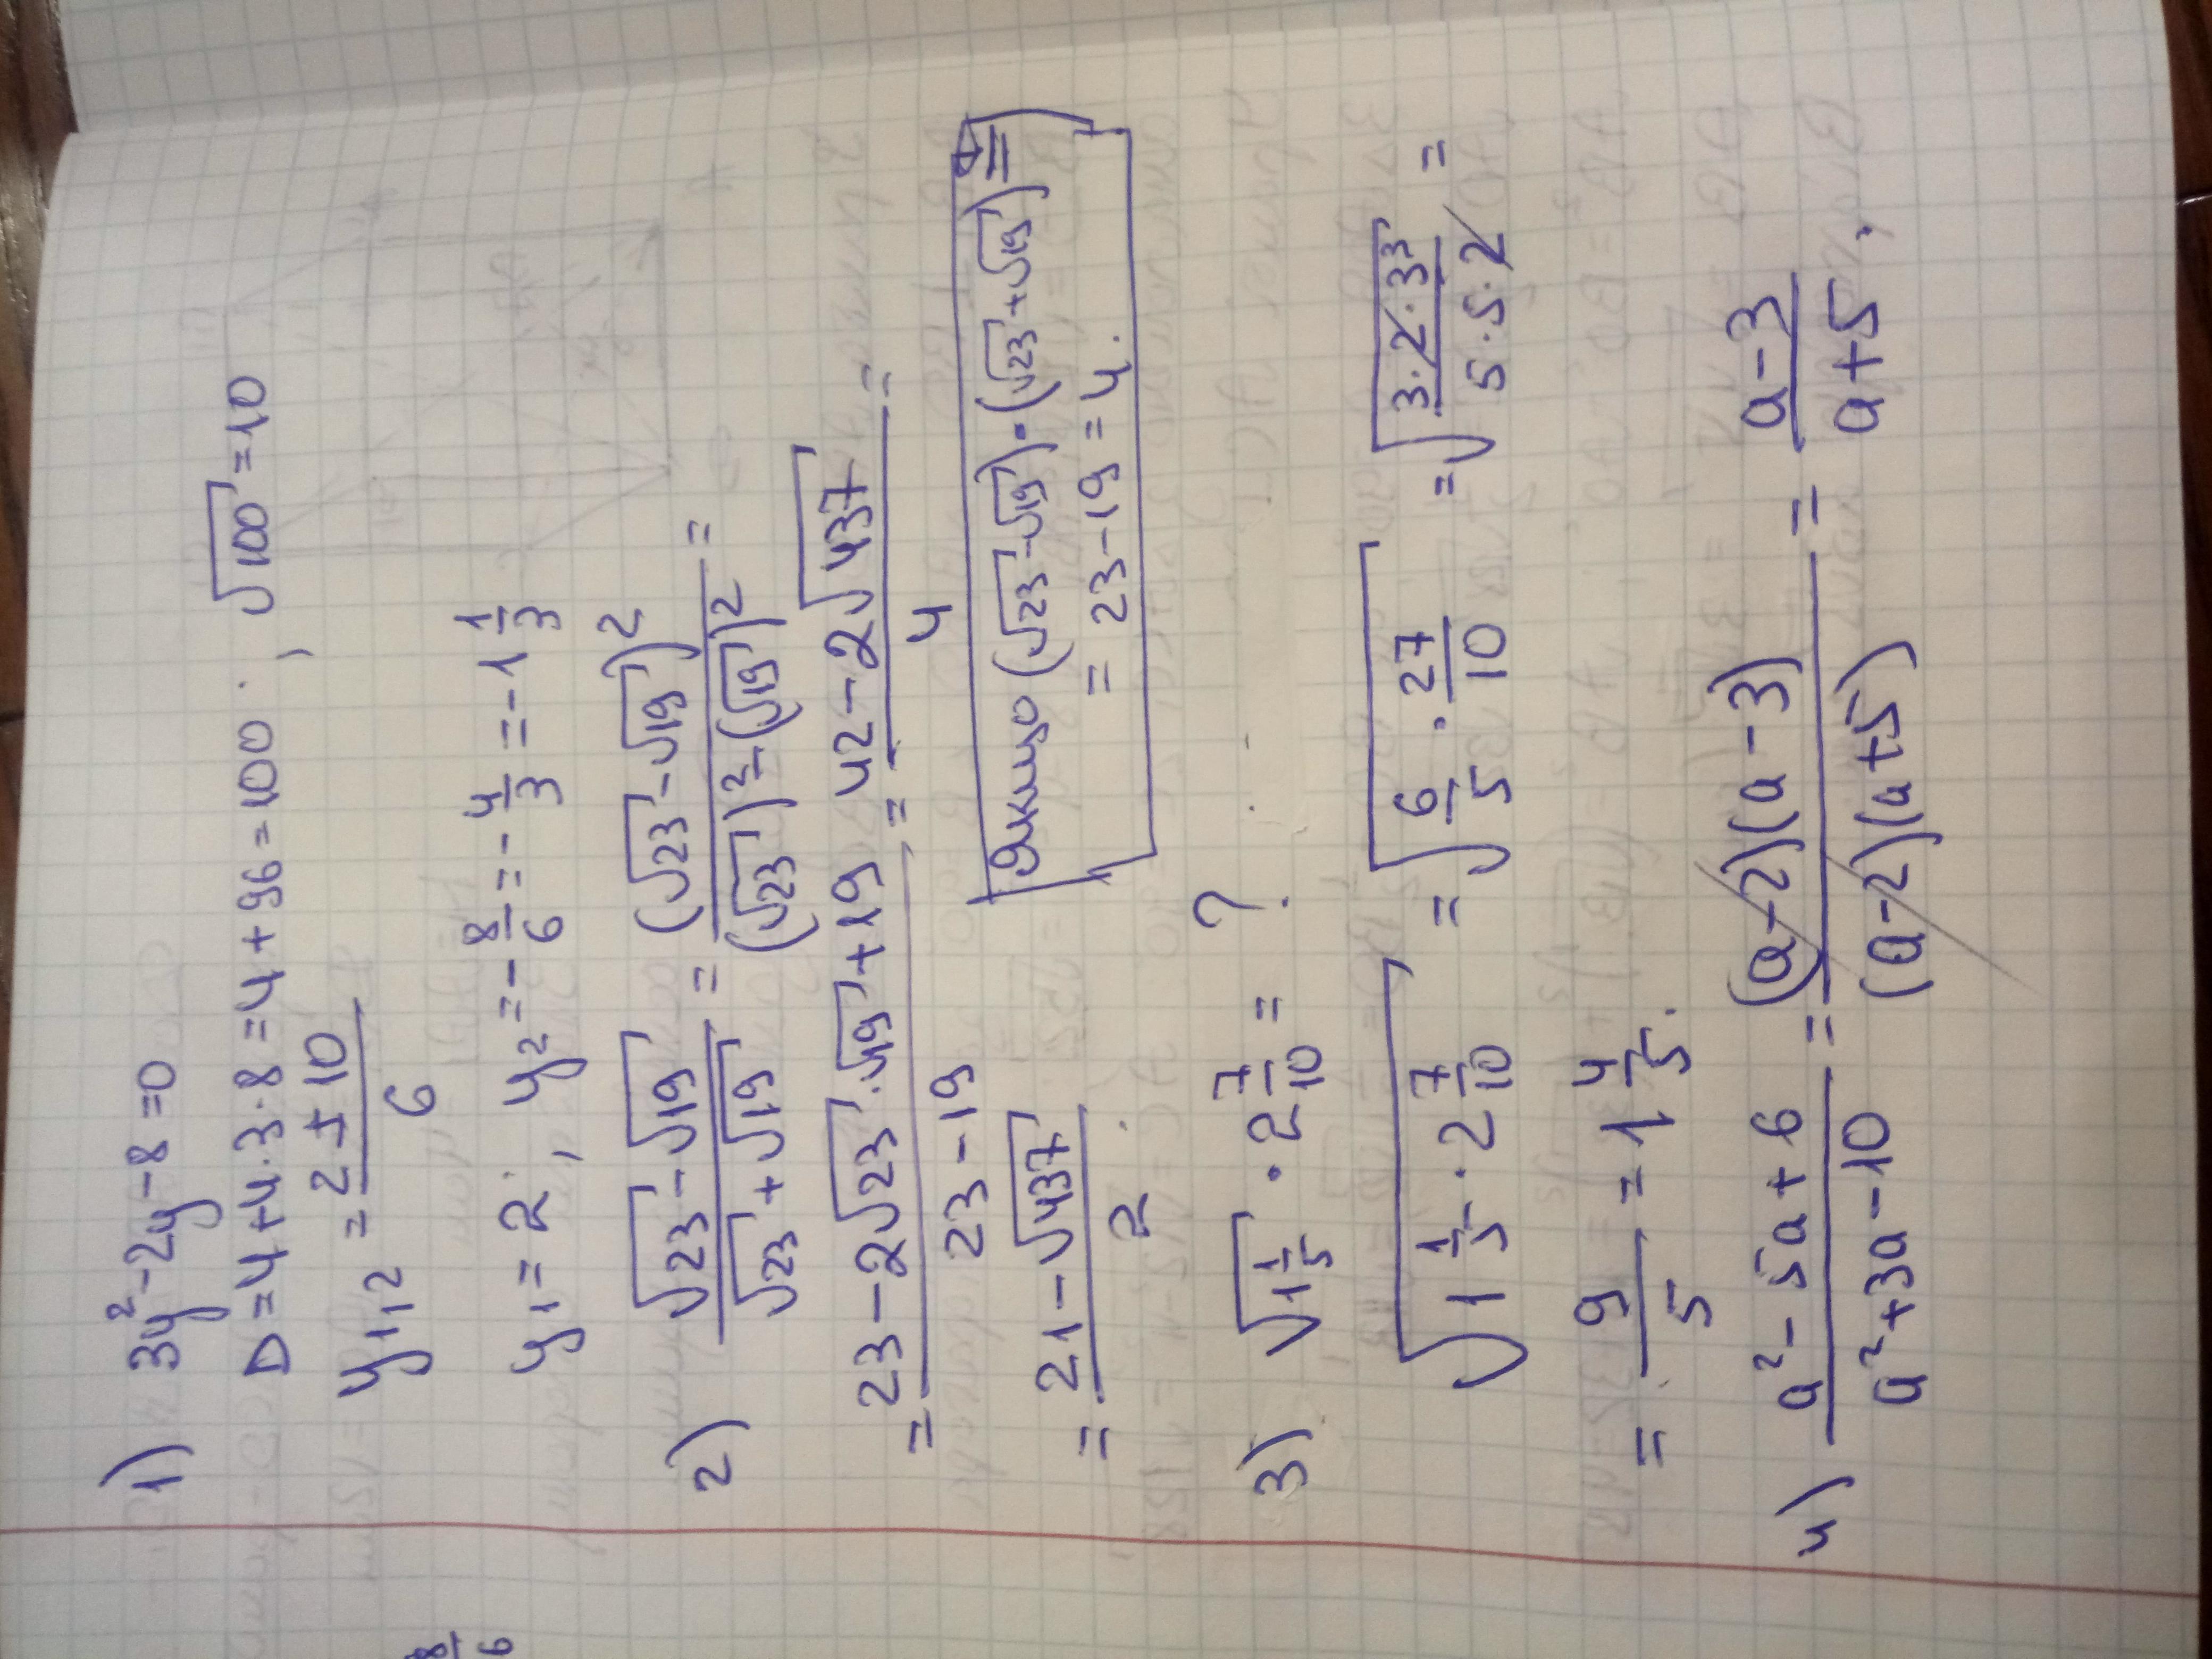 1) 3y²-2y-8=0
D=4+4·3·8=4+96=100; √100=10
y₁,₂ = (2±10)/6
y₁=2; y₂=-8/6=-4/3=-1 1/3
2) (√23-√19)/(√23+√19) = (√23-√19)²/((√23)²-(√19)²) =
= (23-2√23·√19+19)/(23-19) = (42-2√437)/4 =
= (21-√437)/2.
Якщо (√23-√19)·(√23+√19)=
= 23-19=4.
3) √1 1/5 · 2 7/10 = ?
√(1 1/5 · 2 7/10) = √(6/5 · 27/10) = √((3·2·3³)/(5·5·2)) =
= 9/5 = 1 4/5.
4) (a²-5a+6)/(a²+3a-10) = ((a-2)(a-3))/((a-2)(a+5)) = (a-3)/(a+5),
8/6